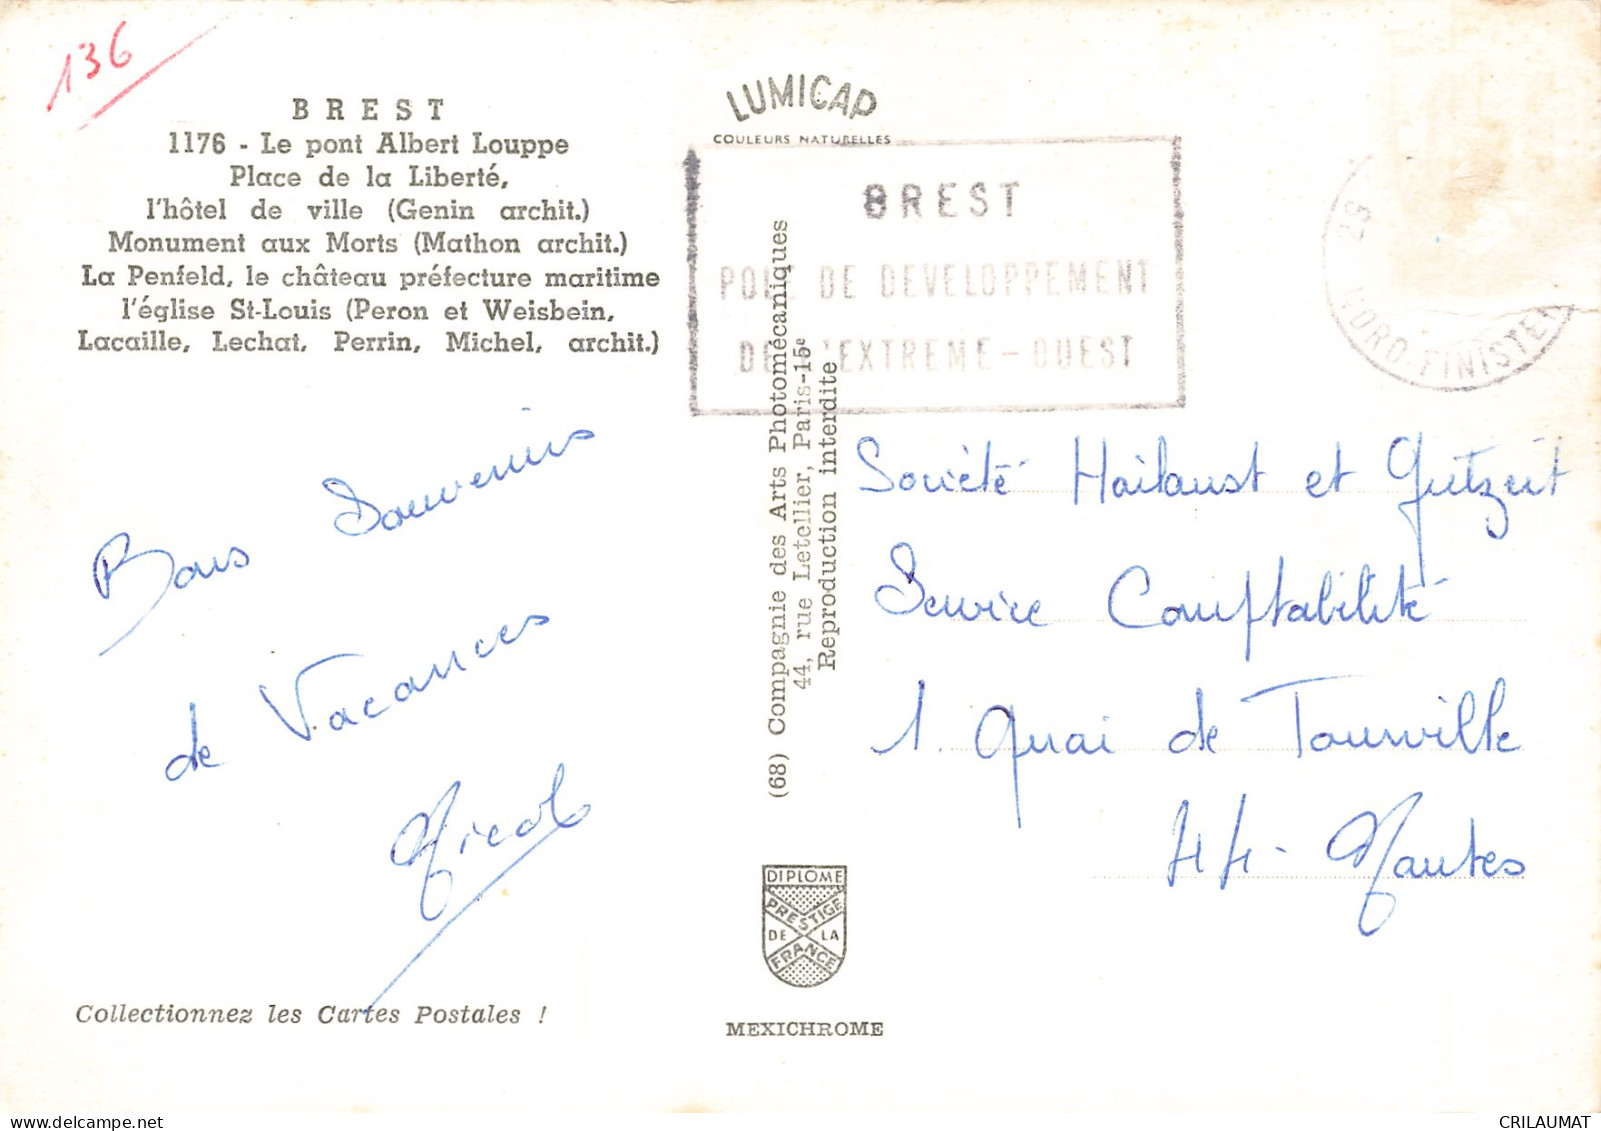 136
BREST
1176 - Le pont Albert Louppe
Place de la Liberté,
l'hôtel de ville (Genin archit.)
Monument aux Morts (Mathon archit.)
La Penfeld, le château préfecture maritime
l'église St-Louis (Peron et Weisbein,
Lacaille, Lechat, Perrin, Michel, archit.)
Bons Souvenirs
de Vacances
Nicol
Collectionnez les Cartes Postales !
LUMICAP
COULEURS NATURELLES
BREST
DE DEVELOPPEMENT
EXTREME - OUEST
29
NORD-FINISTE
(68) Compagnie des Arts Photomécaniques
44, rue Letellier, Paris-15e
Reproduction interdite
DIPLOME
PRESTIGE
DE LA
FRANCE
MEXICHROME
Société Hailaust et Gutzeit
Service Comptabilité
1. Quai de Tourville
44 - Nantes
CRILAUMAT